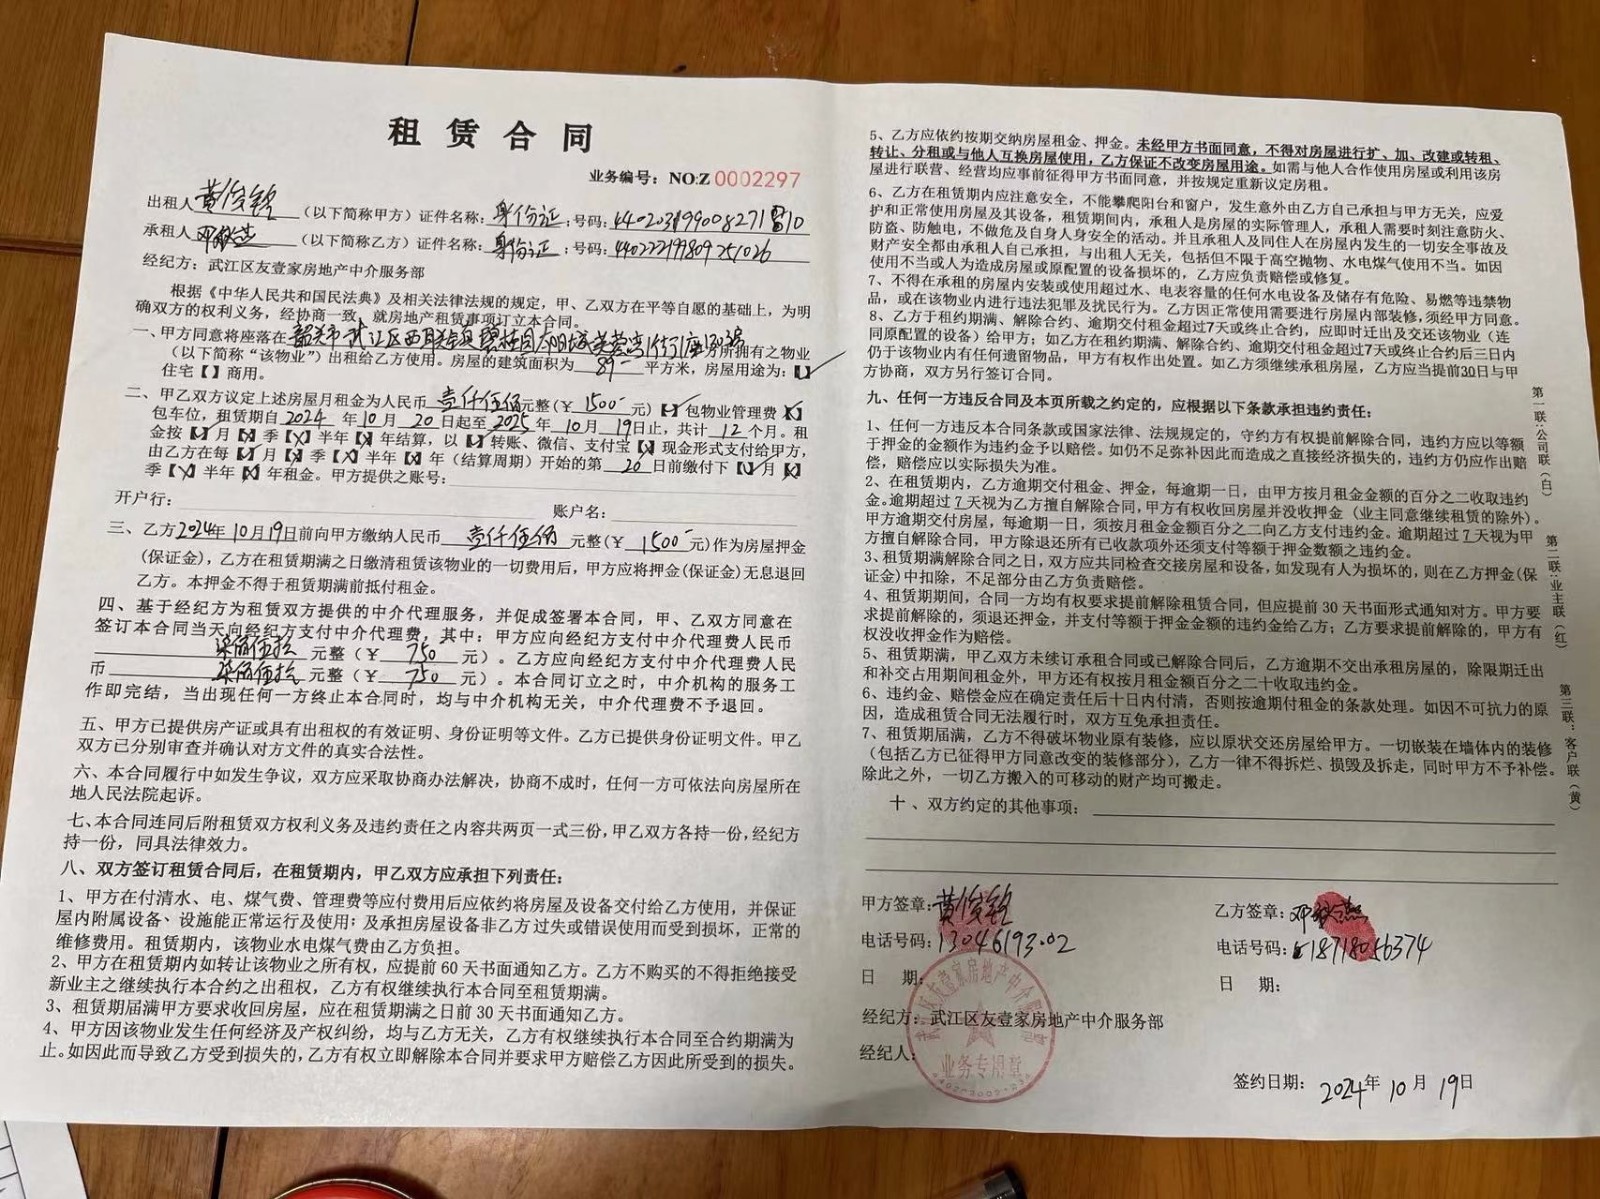 租赁合同
业务编号：NO:Z 0002297
出租人 黄俊铭 （以下简称甲方）证件名称：身份证；号码：
承租人 （以下简称乙方）证件名称：身份证；号码：440222197809251026
经纪方：武江区友壹家房地产中介服务部
根据《中华人民共和国民法典》及相关法律法规的规定，甲、乙双方在平等自愿的基础上，为明
确双方的权利义务，经协商一致，就房地产租赁事项订立本合同。
一、甲方同意将座落在 韶关市武江区西联镇碧桂园 街1座1303房 方所拥有之物业
（以下简称“该物业”）出租给乙方使用。房屋的建筑面积为 89 平方米，房屋用途为：【】
住宅【 】商用。
二、甲乙双方议定上述房屋月租金为人民币 壹仟伍佰 元整（￥ 1500 元）【✓】包物业管理费【X】
包车位，租赁期自 2024 年 10 月 20 日起至 2025 年 10 月 19 日止，共计 12 个月。租
金按【✓】月【X】季【X】半年【X】年结算，以【✓】转账、微信、支付宝【X】现金形式支付给甲方，
由乙方在每【✓】月【X】季【X】半年【X】年（结算周期）开始的第 20 日前缴付下【✓】月【X】
季【X】半年【X】年租金。甲方提供之账号：
开户行： 账户名：
三、乙方 2024年10月19日 前向甲方缴纳人民币 壹仟伍佰 元整（￥ 1500 元）作为房屋押金
（保证金），乙方在租赁期满之日缴清租赁该物业的一切费用后，甲方应将押金（保证金）无息退回
乙方。本押金不得于租赁期满前抵付租金。
四、基于经纪方为租赁双方提供的中介代理服务，并促成签署本合同，甲、乙双方同意在
签订本合同当天向经纪方支付中介代理费，其中：甲方应向经纪方支付中介代理费人民币
柒佰伍拾 元整（￥ 750 元）。乙方应向经纪方支付中介代理费人民
币 柒佰伍拾 元整（￥ 750 元）。本合同订立之时，中介机构的服务工
作即完结，当出现任何一方终止本合同时，均与中介机构无关，中介代理费不予退回。
五、甲方已提供房产证或具有出租权的有效证明、身份证明等文件。乙方已提供身份证明文件。甲乙
双方已分别审查并确认对方文件的真实合法性。
六、本合同履行中如发生争议，双方应采取协商办法解决，协商不成时，任何一方可依法向房屋所在
地人民法院起诉。
七、本合同连同后附租赁双方权利义务及违约责任之内容共两页一式三份，甲乙双方各持一份，经纪方
持一份，同具法律效力。
八、双方签订租赁合同后，在租赁期内，甲乙双方应承担下列责任：
1、甲方在付清水、电、煤气费、管理费等应付费用后应依约将房屋及设备交付给乙方使用，并保证
屋内附属设备、设施能正常运行及使用；及承担房屋设备非乙方过失或错误使用而受到损坏，正常的
维修费用。租赁期内，该物业水电煤气费由乙方负担。
2、甲方在租赁期内如转让该物业之所有权，应提前60天书面通知乙方。乙方不购买的不得拒绝接受
新业主之继续执行本合约之出租权，乙方有权继续执行本合同至租赁期满。
3、租赁期届满甲方要求收回房屋，应在租赁期满之日前30天书面通知乙方。
4、甲方因该物业发生任何经济及产权纠纷，均与乙方无关，乙方有权继续执行本合同至合约期满为
止。如因此而导致乙方受到损失的，乙方有权立即解除本合同并要求甲方赔偿乙方因此所受到的损失。
5、乙方应依约按期交纳房屋租金、押金。未经甲方书面同意，不得对房屋进行扩、加、改建或转租、
转让、分租或与他人互换房屋使用，乙方保证不改变房屋用途。如需与他人合作使用房屋或利用该房
屋进行联营、经营均应事前征得甲方书面同意，并按规定重新议定房租。
6、乙方在租赁期内应注意安全，不能攀爬阳台和窗户，发生意外由乙方自己承担与甲方无关，应爱
护和正常使用房屋及其设备，租赁期间内，承租人是房屋的实际管理人，承租人需要时刻注意防火、
防盗、防触电，不做危及自身人身安全的活动。并且承租人及同住人在房屋内发生的一切安全事故及
财产安全都由承租人自己承担，与出租人无关，包括但不限于高空抛物、水电煤气使用不当。如因
使用不当或人为造成房屋或原配置的设备损坏的，乙方应负责赔偿或修复。
7、不得在承租的房屋内安装或使用超过水、电表容量的任何水电设备及储存有危险、易燃等违禁物
品，或在该物业内进行违法犯罪及扰民行为。乙方因正常使用需要进行房屋内部装修，须经甲方同意。
8、乙方于租约期满、解除合约、逾期交付租金超过7天或终止合约，应即时迁出及交还该物业（连
同原配置的设备）给甲方；如乙方在租约期满、解除合约、逾期交付租金超过7天或终止合约后三日内
仍于该物业内有任何遗留物品，甲方有权作出处置。如乙方须继续承租房屋，乙方应当提前30日与甲
方协商，双方另行签订合同。
九、任何一方违反合同及本页所载之约定的，应根据以下条款承担违约责任：
1、任何一方违反本合同条款或国家法律、法规规定的，守约方有权提前解除合同，违约方应以等额
于押金的金额作为违约金予以赔偿。如仍不足弥补因此而造成之直接经济损失的，违约方仍应作出赔
偿，赔偿应以实际损失为准。
2、在租赁期内，乙方逾期交付租金、押金，每逾期一日，由甲方按月租金金额的百分之二收取违约
金。逾期超过 7 天视为乙方擅自解除合同，甲方有权收回房屋并没收押金（业主同意继续租赁的除外）。
甲方逾期交付房屋，每逾期一日，须按月租金金额百分之二向乙方支付违约金。逾期超过 7 天视为甲
方擅自解除合同，甲方除退还所有已收款项外还须支付等额于押金数额之违约金。
3、租赁期满解除合同之日，双方应共同检查交接房屋和设备，如发现有人为损坏的，则在乙方押金（保
证金）中扣除，不足部分由乙方负责赔偿。
4、租赁期期间，合同一方均有权要求提前解除租赁合同，但应提前30天书面形式通知对方。甲方要
求提前解除的，须退还押金，并支付等额于押金金额的违约金给乙方；乙方要求提前解除的，甲方有
权没收押金作为赔偿。
5、租赁期满，甲乙双方未续订承租合同或已解除合同后，乙方逾期不交出承租房屋的，除限期迁出
和补交占用期间租金外，甲方还有权按月租金额百分之二十收取违约金。
6、违约金、赔偿金应在确定责任后十日内付清，否则按逾期付租金的条款处理。如因不可抗力的原
因，造成租赁合同无法履行时，双方互免承担责任。
7、租赁期届满，乙方不得破坏物业原有装修，应以原状交还房屋给甲方。一切嵌装在墙体内的装修
（包括乙方已征得甲方同意改变的装修部分），乙方一律不得拆烂、损毁及拆走，同时甲方不予补偿。
除此之外，一切乙方搬入的可移动的财产均可搬走。
十、双方约定的其他事项：
甲方签章：黄俊铭
电话号码：
日 期：
经纪方：武江区友壹家房地产中介服务部
经纪人：
武江区友壹家房地产中介服务部
业务专用章
乙方签章：
电话号码：18718056374
日 期：
签约日期：2024年10月19日
第一联：公司联（白）
第二联：业主联（红）
第三联：客户联（黄）